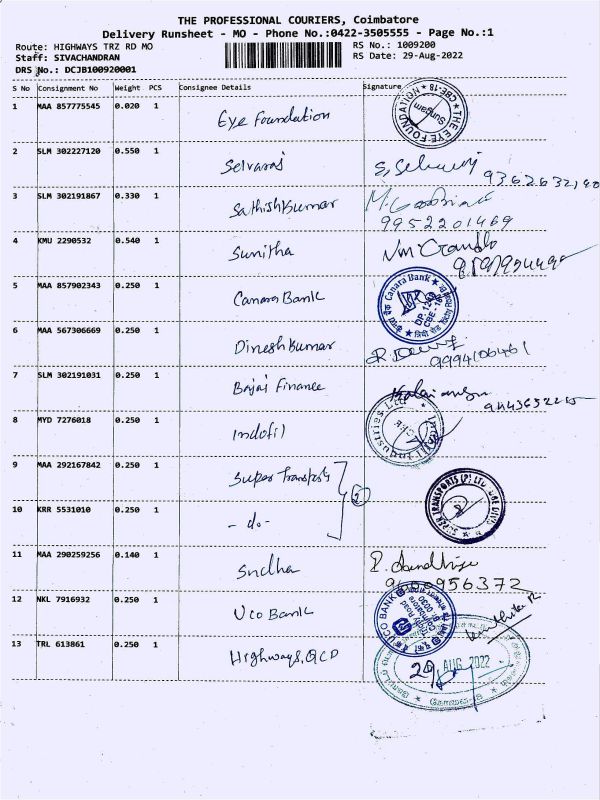 THE PROFESSIONAL COURIERS, Coimbatore
Delivery Runsheet - MO - Phone No.:0422-3505555 - Page No.:1
Route: HIGHWAYS TRZ RD MO
RS No.: 1009200
Staff: SIVACHANDRAN
RS Date: 29-Aug-2022
DRS No.: DCJB100920001
S No Consignment No Weight PCS Consignee Details Signature
1 MAA 857775545 0.020 1 Eye Foundation
THE EYE FOUNDATION CBE-18 Sungam
2 SLM 302227120 0.550 1 Selvaraj
3 SLM 302191867 0.330 1 SathishKumar
9952201469
4 KMU 2290532 0.540 1 Sunitha
5 MAA 857902343 0.250 1 Canara Bank
Canara Bank
6 MAA 567306669 0.250 1 Dinesh Kumar
9994106461
7 SLM 302191031 0.250 1 Bajaj Finance
8 MYD 7276018 0.250 1 Indofil
9 MAA 292167842 0.250 1 Super Transports
2
10 KRR 5531010 0.250 1 - do -
SUPER TRANSPORTS (P) LTD
11 MAA 290259256 0.140 1 Sudha
12 NKL 7916932 0.250 1 Uco Bank
UCO BANK
13 TRL 613861 0.250 1 Highways, QCD
29 AUG 2022